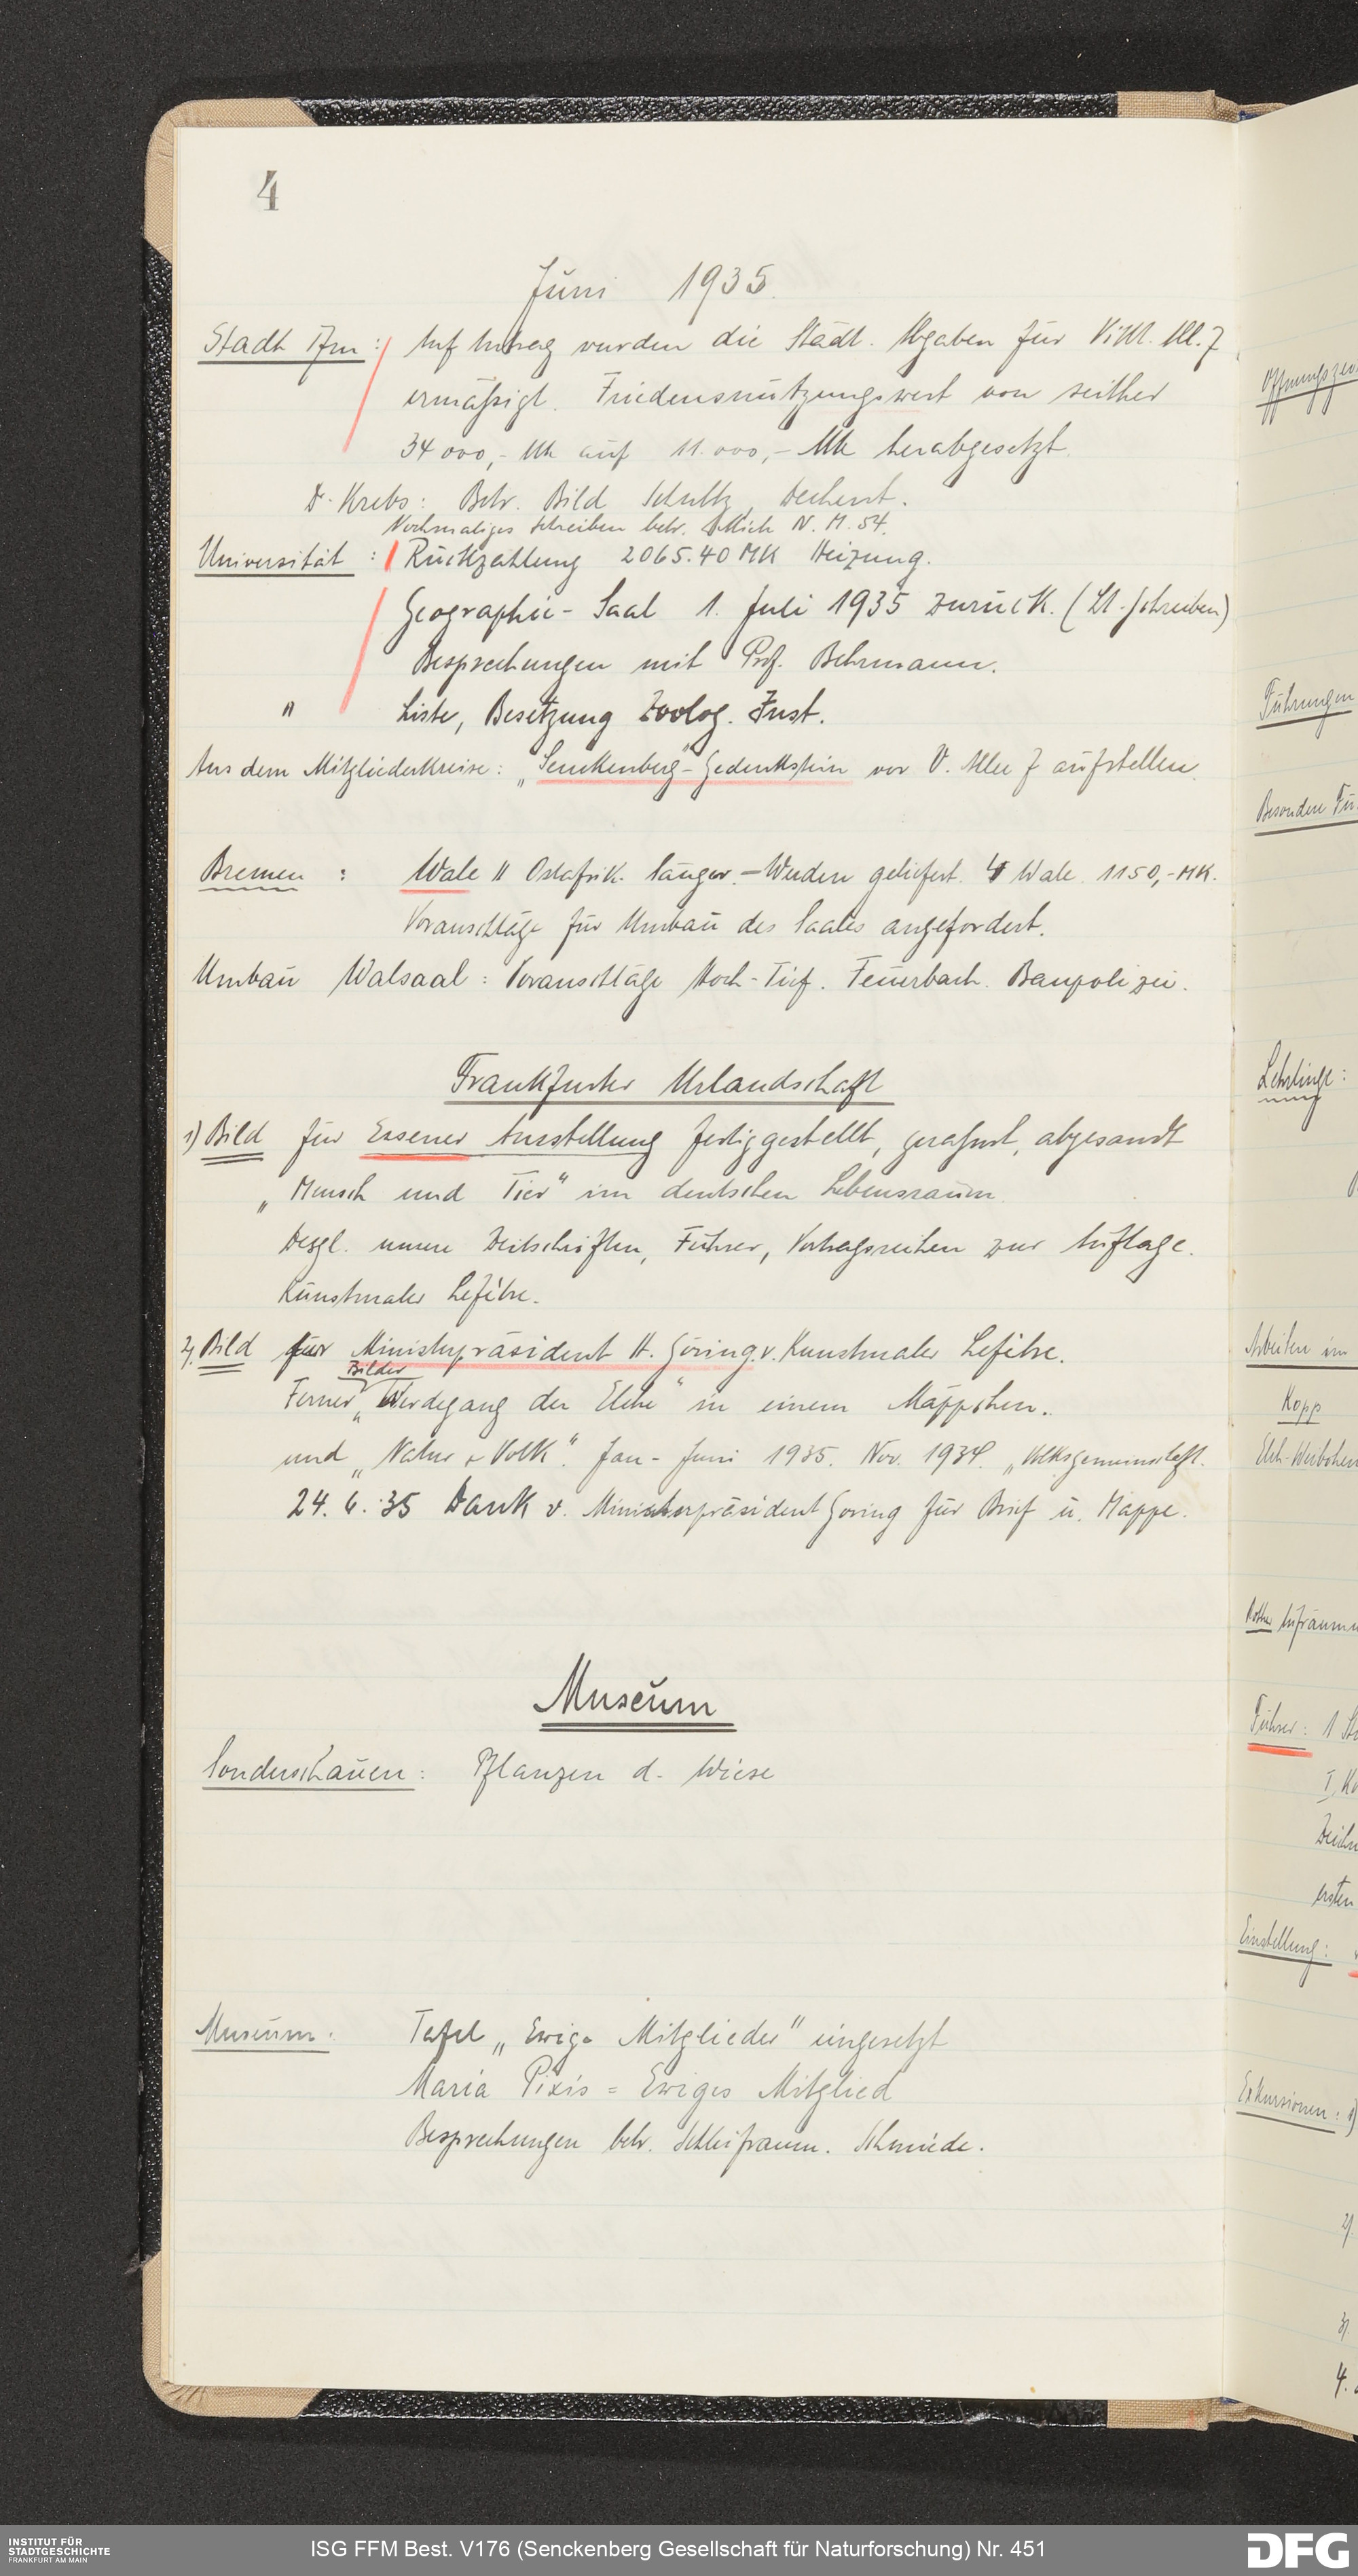 4
Juni 1935.
Stadt Ffm: Auf Antrag wurden die Städt. Abgaben für Vikt. All. 7
ermäßigt. Friedensnutzungswert von seither
34 000,- Mk auf 11.000,- Mk herabgesetzt.
Dr. Krebs: Betr. Bild Schultz, Dechent.
Nochmaliges Schreiben betr. N. M. 54.
Universität: Rückzahlung 2065.40 MK Heizung.
Geographie-Saal 1. Juli 1935 zurück. (Lt. Schreiben)
Besprechungen mit Prof. Behrmann.
" Liste, Besetzung Zoolog. Inst.
Aus dem Mitgliederkreise: „Senckenberg"-Gedenkstein vor V. Allee 7 aufstellen.
Bremen: Wale II Ostafrik. Säuger. – Werden geliefert. 4 Wale 1150,- MK.
Voranschläge für Umbau des Saales angefordert.
Umbau Walsaal: Voranschläge Hoch-Tief. Feuerbach. Baupolizei.
Frankfurter Urlandschaft
1) Bild für Essener Ausstellung fertiggestellt, gerahmt, abgesandt
„Mensch und Tier" im deutschen Lebensraum
Desgl. unsere Zeitschriften, Führer, Vortragsreihen zur Auflage.
Kunstmaler Lefèbre.
2) Bild für Ministerpräsident H. Göring. v. Kunstmaler Lefèbre.
Bilder
Ferner „Werdegang der Elche" in einem Mäppchen.
und „Natur & Volk". Jan - Juni 1935. Nov. 1934. „Volksgemeinschaft.
24. 6. 35 Dank v. Ministerpräsident Göring für Brief u. Mappe.
Museum
Sonderschauen: Pflanzen d. Wiese
Museum: Tafel „Ewige Mitglieder" eingesetzt
Maria Pixis = Ewiges Mitglied
Besprechungen betr. Schleifraum. Schmiede.
Führungen
Lehrlinge:
Arbeiten im
Kopp
Führer: 1
ersten
Einstellung:
Exkursionen: 1)
2)
3)
4.
INSTITUT FÜR
STADTGESCHICHTE
FRANKFURT AM MAIN
ISG FFM Best. V176 (Senckenberg Gesellschaft für Naturforschung) Nr. 451
DFG